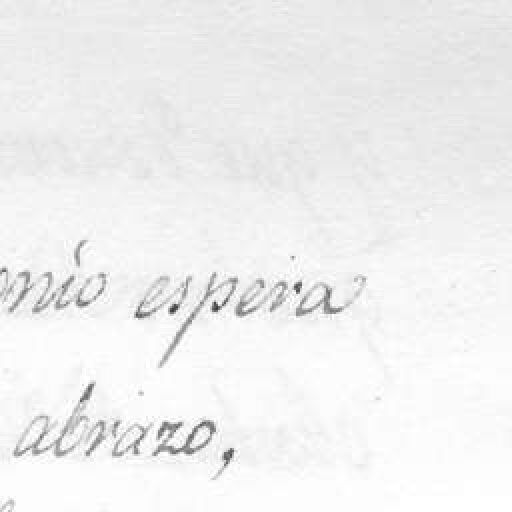 onio espera
abrazo,